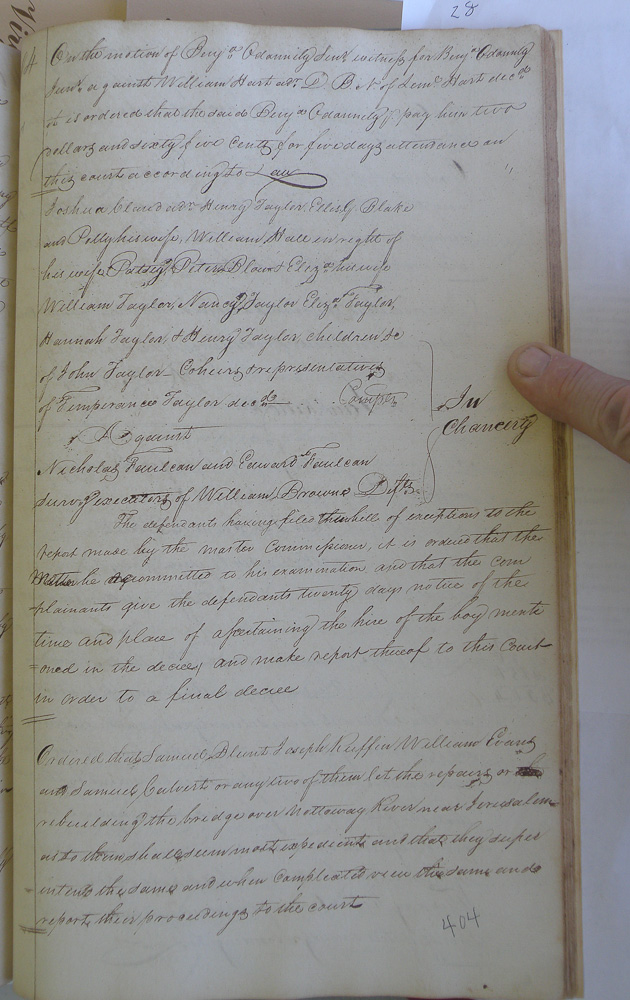 28
On the motion of Benja. Odannily Senr. witness for Benja. Odannily
Junr. against William Hart adr. D. B. N of Leml. Hart decd.
it is ordered that the said Benja. Odannily Jr. pay him two
dollars and sixty five cents for five days attendance on
this court according to Law
Joshua Claud adr. Henry Taylor, Ellis G. Blake
and Polly his wife, William Hall in right of
his wife Patsey, Peter Blow & Eliza. his wife
William Taylor, Nancy Taylor Eliza. Taylor,
Hannah Taylor, & Henry Taylor, children &c
of John Taylor Coheirs & representatives
of Temperance Taylor decd. Complts
Against
In
Chancery
Nicholas Faulcon and Edward Faulcon
surv. executors of William Browne Defts.
The defendants having filed their bill of exceptions to the
report made by the master Commissioner, it is ordered that the
Matter be recommitted to his examination and that the com
-plainants give the defendants twenty days notice of the
time and place of ascertaining the hire of the boy menti
=oned in the decree, and make report thereof to this Court
in order to a final decree
Ordered that Samuel Blunt Joseph Ruffin William Evans
and Samuel Calvert or any two of them let the repairs or the
rebuilding the bridge over Nottoway River near Jerusalem
as to them shall seem most expedient and that they super
intend the same and when compleated view the same and
report their proceedings to the court
404